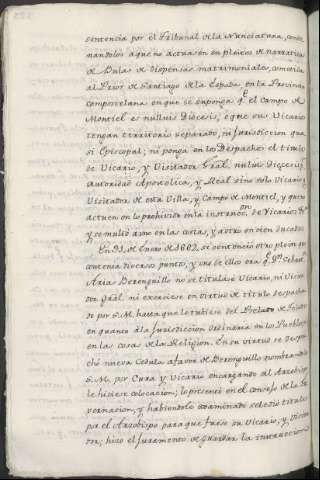 sentencia por el Tribunal de la Nunciatura, conde
nandolos a que no actuasen en pleitos de narrativa
de Bulas de dispensas matrimoniales, cometida
al Prior de Santiago de la Espada en la Provincia
Compostelana en que se suponga q.e el Campo de
Montiel es nullius Diocesis, o que su Vicario
tengan territorio separado, ni Jurisdiccion qua
si Episcopal; ni ponga en los Despachos el titulo
de Vicario, y Visitador Gral. nullius Diocesis
autoridad Apostolica, y Real sino solo Vicario y
Visitador de esta Villa, y Campo de Montiel, y que
actuen en lo prohivido en la instruc.on de Vicarios
y se multó a uno en las costas, y a otro en cien ducados
En 31, de Enero de 1662, se sentenció otro pleito que
contenia diversos puntos, y uno de ellos era q.e D.n
Aria Berenguillo no se titulase Vicario, ni Visita
dor Gral. ni exerciese en virtud de titulo despacha
do por S.M. hasta que lo tubiese del Prelado de Toledo
en quanto á la Jurisdiccion Ordinaria en los Pueblos
en las cosas de la Religion. En su virtud se despa
chó nueva Cedula a favor de Berenguillo nombrandole
S.M. por Cura y Vicario encargando al Arzobispo
le hiciese colacion; lo presentó en el Consejo de la Go
vernacion, y habiendolo examinado se le dió titulo
por el Arzobispo para que fuese su Vicario, y Visita
dor; hizo el Juramento de guardar la instruccion